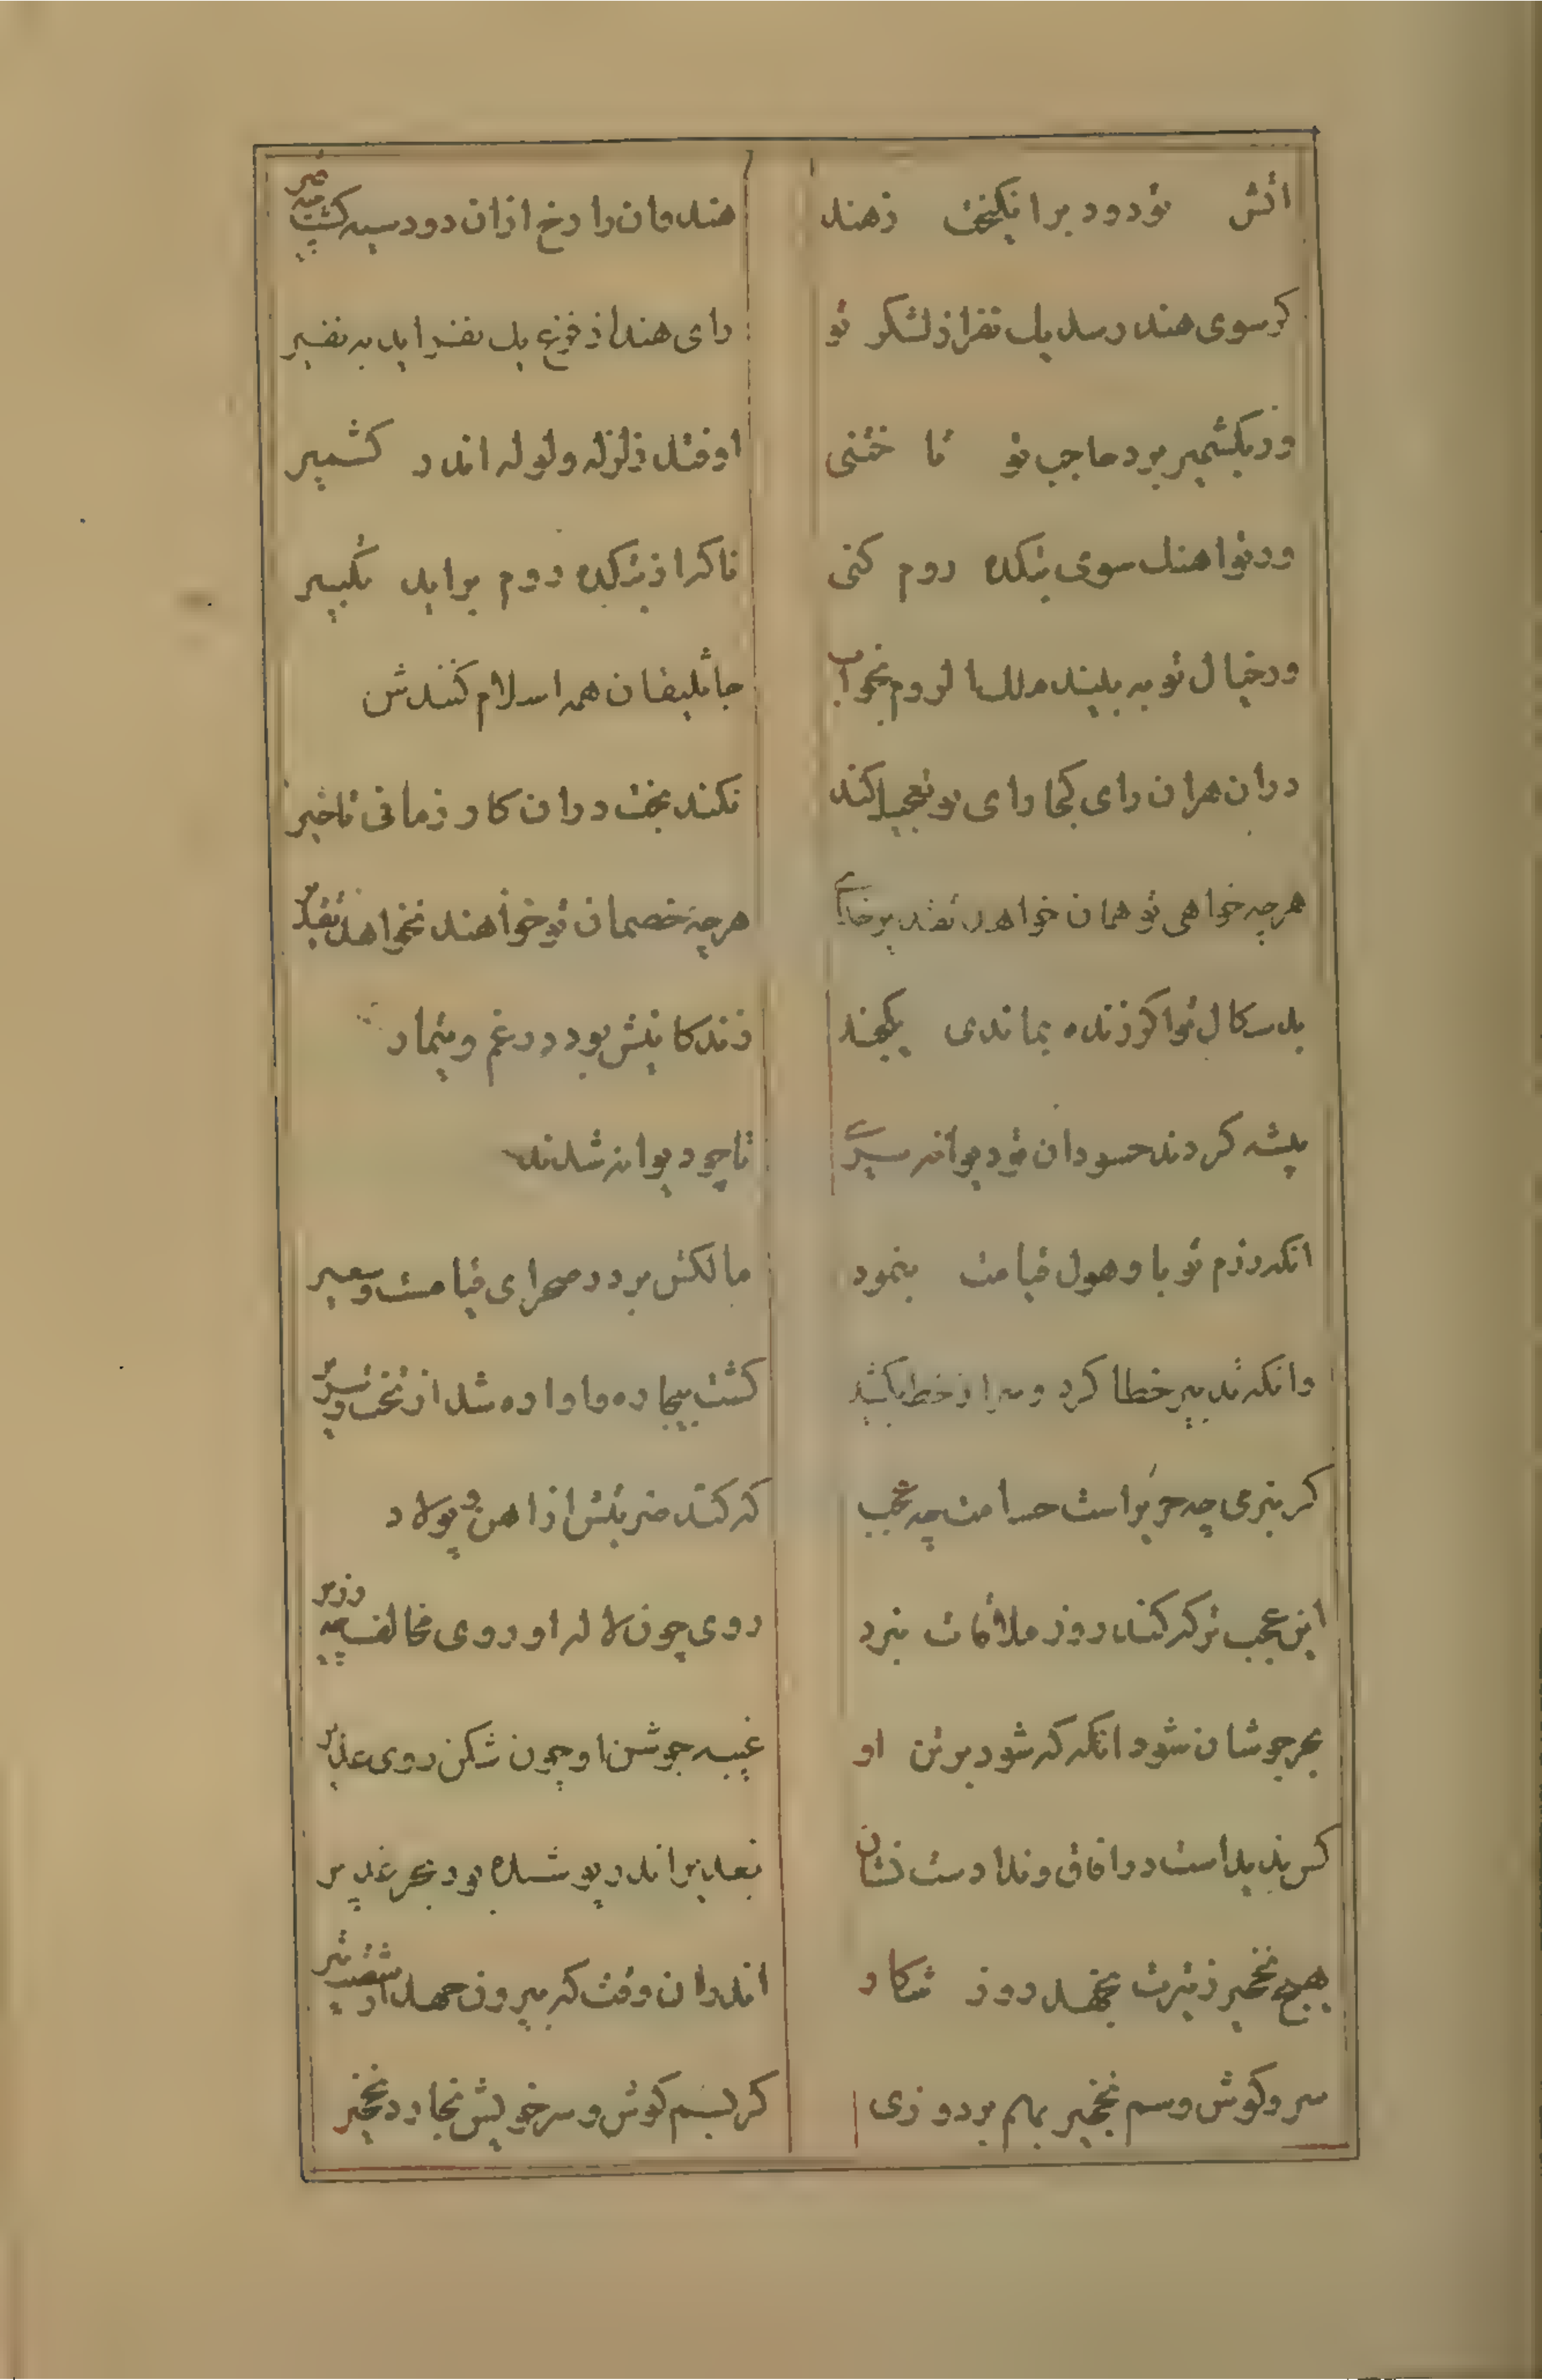 اتش تو دود برانکیخت زهند هندوان را رخ ازان دود سیه کشت چو قیر
کر سوی هند رسد یک نفر از لشکر تو رای هند از فزع یک نفر اید به نفیر
ور بکشمیر برد حاجب تو تا ختنی اوفتد زلزله و لوله اندر کشمیر
ور تو اهنک سوی بتکده روم کنی ناکه از بتکده روم براید تکبیر
ور خیال تو به بیند ملک الروم بخواب جاثلیقان همه اسلام کنندش
دران هران رای کجا رای تو تعجیل کند نکند بخت دران کار زمانی تاخیر
هرچه خواهی تو همان خواهد تقدیر خدای هرچه خصمان تو خواهند نخواهد تقدیر
بد سکال تو اکر زنده بماندی یکچند زندکانیش بود در غم و تیمار
پیشه کردند حسودان تو دیوانه سری تا چو دیوانه شدند
انکه رزم تو باو هول قیامت بنمود مالکش برد در صحرای قیامت و سعیر
وانکه تدبیر خطا کرد و سر از خط بکشید کشت بیچاره و اواره شد از تخت و سریر
کر بنرمی چه حریر است حسامت چه عجب که کند ضربتش از اهن و پولاد
این عجب تر که کند روز ملاقات نبرد روی چون لاله او روی مخالف چو زریر
بحر جوشان شود انکه که شود بر تن او غیبه جوشن او چون شکن روی غدیر
کس ندید است در افاق و ندادست نشان بعدیر اندر پوشیده بود بحر غدیر
هیچ نخجیر ز تیرت نجهد روز شکار اندران وقت که بیرون جهد از شست تو تیر
سر و کوش و سم نخجیر بهم بر دوزی کر بسم کوش و سر خویش بخارد نخجیر